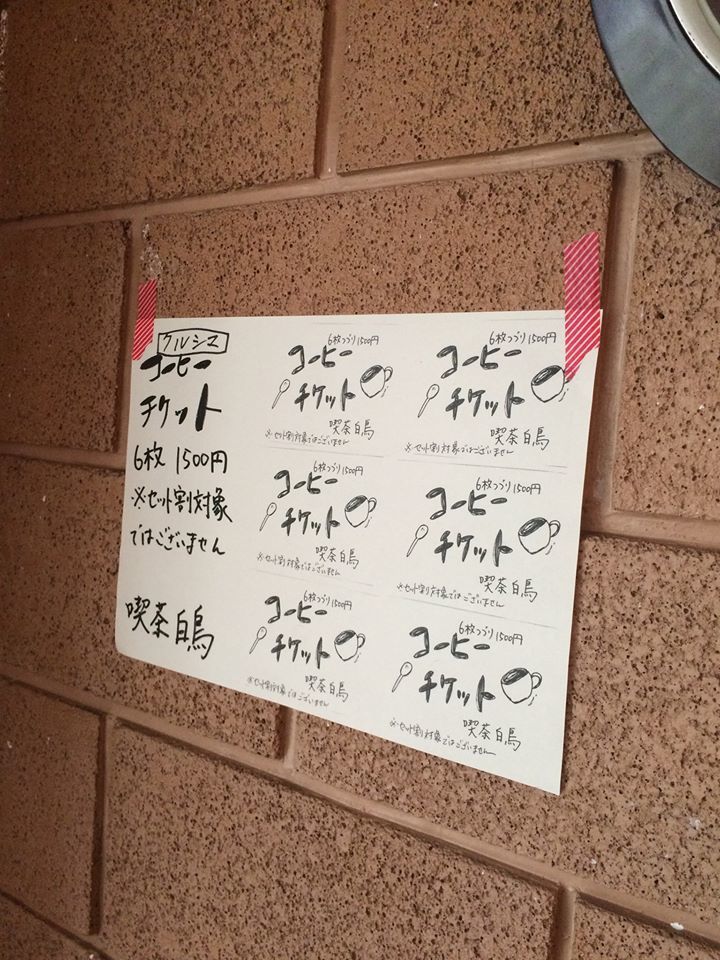 クルシマ
コーヒー
チケット
6枚 1500円
※セット割対象
ではございません
喫茶白鳥
6枚つづり1500円
コーヒー
チケット
喫茶白鳥
※セット割対象ではございません
6枚つづり1500円
コーヒー
チケット
喫茶白鳥
※セット割対象ではございません
6枚つづり1500円
コーヒー
チケット
喫茶白鳥
※セット割対象ではございません
6枚つづり1500円
コーヒー
チケット
喫茶白鳥
※セット割対象ではございません
6枚つづり1500円
コーヒー
チケット
喫茶白鳥
※セット割対象ではございません
6枚つづり1500円
コーヒー
チケット
喫茶白鳥
※セット割対象ではございません